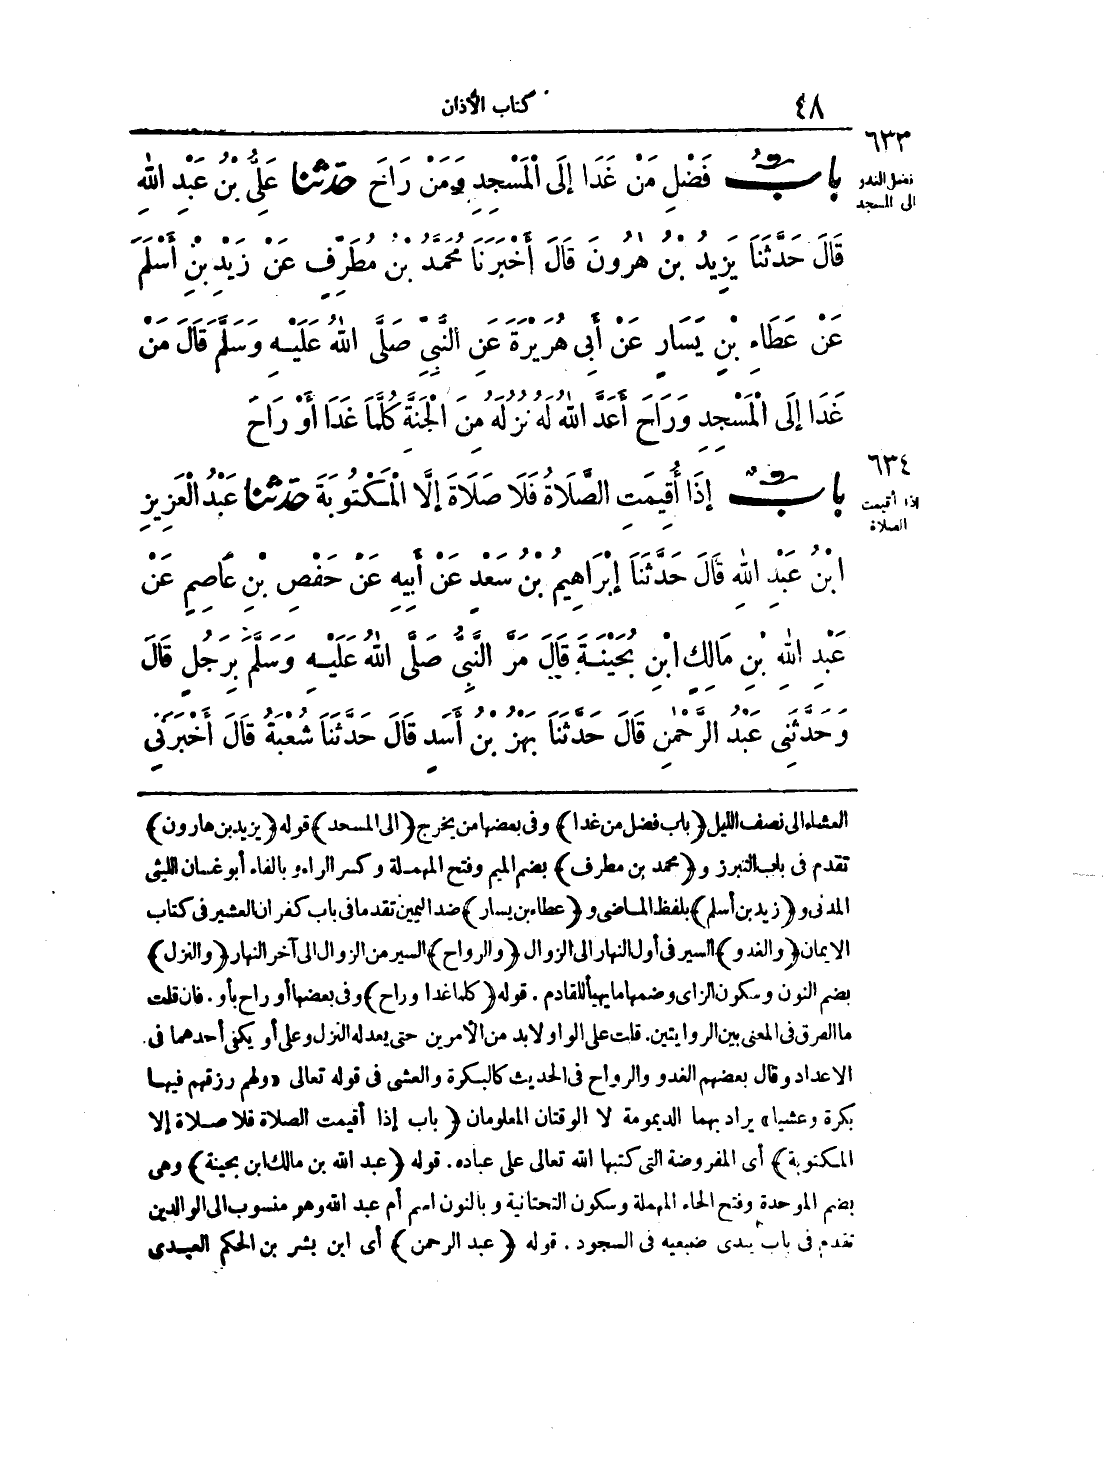 ٤٨
كتاب الأذان
٦٣٣
فضل الغدو
الى المسجد
بابُ فَضْلِ مَنْ غَدَا إِلَى الْمَسْجِدِ وَمَنْ رَاحَ حَدَّثَنَا عَلِيُّ بْنُ عَبْدِ اللهِ
قَالَ حَدَّثَنَا يَزِيدُ بْنُ هٰرُونَ قَالَ أَخْبَرَنَا مُحَمَّدُ بْنُ مُطَرِّفٍ عَنْ زَيْدِ بْنِ أَسْلَمَ
عَنْ عَطَاءِ بْنِ يَسَارٍ عَنْ أَبِي هُرَيْرَةَ عَنِ النَّبِيِّ صَلَّى اللهُ عَلَيْهِ وَسَلَّمَ قَالَ مَنْ
غَدَا إِلَى الْمَسْجِدِ وَرَاحَ أَعَدَّ اللهُ لَهُ نُزُلَهُ مِنَ الْجَنَّةِ كُلَّمَا غَدَا أَوْ رَاحَ
٦٣٤
اذا أقيمت
الصلاة
بابٌ إِذَا أُقِيمَتِ الصَّلَاةُ فَلَا صَلَاةَ إِلَّا الْمَكْتُوبَةَ حَدَّثَنَا عَبْدُ الْعَزِيزِ
ابْنُ عَبْدِ اللهِ قَالَ حَدَّثَنَا إِبْرَاهِيمُ بْنُ سَعْدٍ عَنْ أَبِيهِ عَنْ حَفْصِ بْنِ عَاصِمٍ عَنْ
عَبْدِ اللهِ بْنِ مَالِكٍ ابْنِ بُحَيْنَةَ قَالَ مَرَّ النَّبِيُّ صَلَّى اللهُ عَلَيْهِ وَسَلَّمَ بِرَجُلٍ قَالَ
وَحَدَّثَنِي عَبْدُ الرَّحْمٰنِ قَالَ حَدَّثَنَا بَهْزُ بْنُ أَسَدٍ قَالَ حَدَّثَنَا شُعْبَةُ قَالَ أَخْبَرَنِي
العشاء الى نصف الليل (باب فضل من غدا) وفى بعضها من يخرج (الى المسجد) قوله (يزيد بن هارون)
تقدم فى باب التبرز و (محمد بن مطرف) بضم الميم وفتح المهملة وكسر الراء وبالفاء أبو غسان الليثى
المدنى و (زيد بن أسلم) بلفظ الماضى و (عطاء بن يسار) ضد اليمين تقدما فى باب كفران العشير فى كتاب
الايمان (والغدو) السير فى أول النهار الى الزوال (والرواح) السير من الزوال الى آخر النهار (والنزل)
بضم النون وسكون الزاى وضمها ما يهيأ للقادم . قوله (كلما غدا وراح) وفى بعضها أو راح بأو . فان قلت
ما الفرق فى المعنى بين الروايتين. قلت على الواو لابد من الأمرين حتى يعد له النزل وعلى أو يكفى أحدهما فى
الاعداد وقال بعضهم الغدو والرواح فى الحديث كالبكرة والعشى فى قوله تعالى «ولهم رزقهم فيها
بكرة وعشيا» يراد بهما الديمومة لا الوقتان المعلومان (باب إذا أقيمت الصلاة فلا صلاة إلا
المكتوبة) أى المفروضة التى كتبها الله تعالى على عباده. قوله (عبد الله بن مالك ابن بحينة) وهى
بضم الموحدة وفتح الحاء المهملة وسكون التحتانية وبالنون اسم أم عبد الله وهو منسوب الى الوالدين
تقدم فى باب يبدى ضبعيه فى السجود . قوله (عبد الرحمن) أى ابن بشر بن الحكم العبدى